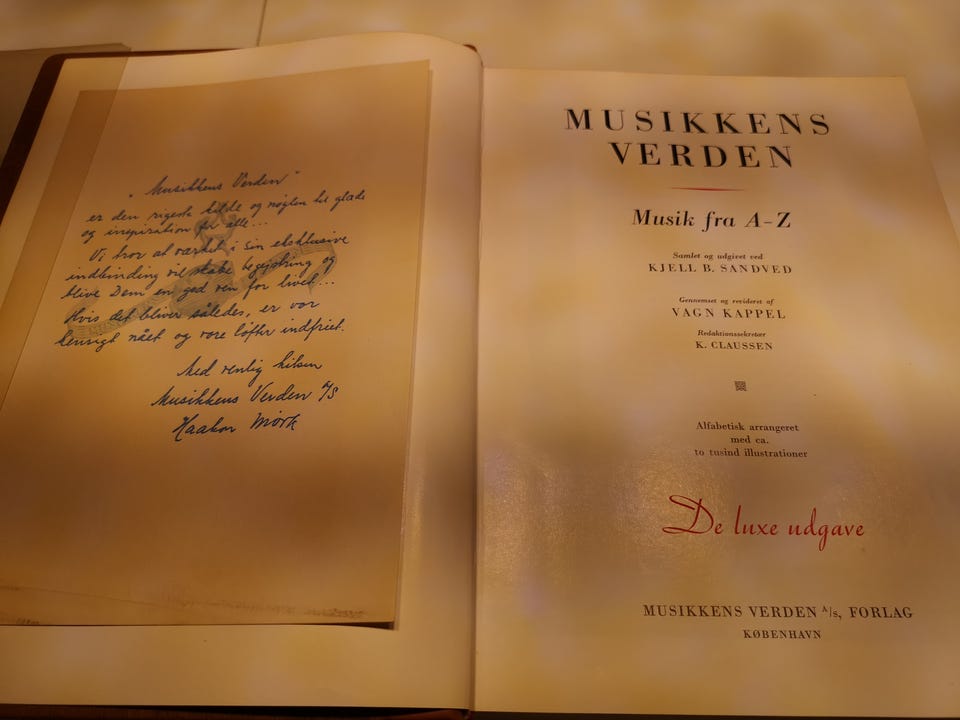 "Musikkens Verden"
er den rigeste kilde og nøglen til glæde
og inspiration for alle...
Vi tror at værket i sin eksklusive
indbinding vil skabe begejstring og
blive Dem en god ven for livet...
Hvis det bliver således, er vor
hensigt nået og vore løfter indfriet.
Med venlig hilsen
Musikkens Verden A/S
Haakon Mörk
MUSIKKENS
VERDEN
Musik fra A-Z
Samlet og udgivet ved
KJELL B. SANDVED
Gennemset og revideret af
VAGN KAPPEL
Redaktionssekretær
K. CLAUSSEN
Alfabetisk arrangeret
med ca.
to tusind illustrationer
De luxe udgave
MUSIKKENS VERDEN A/S, FORLAG
KØBENHAVN